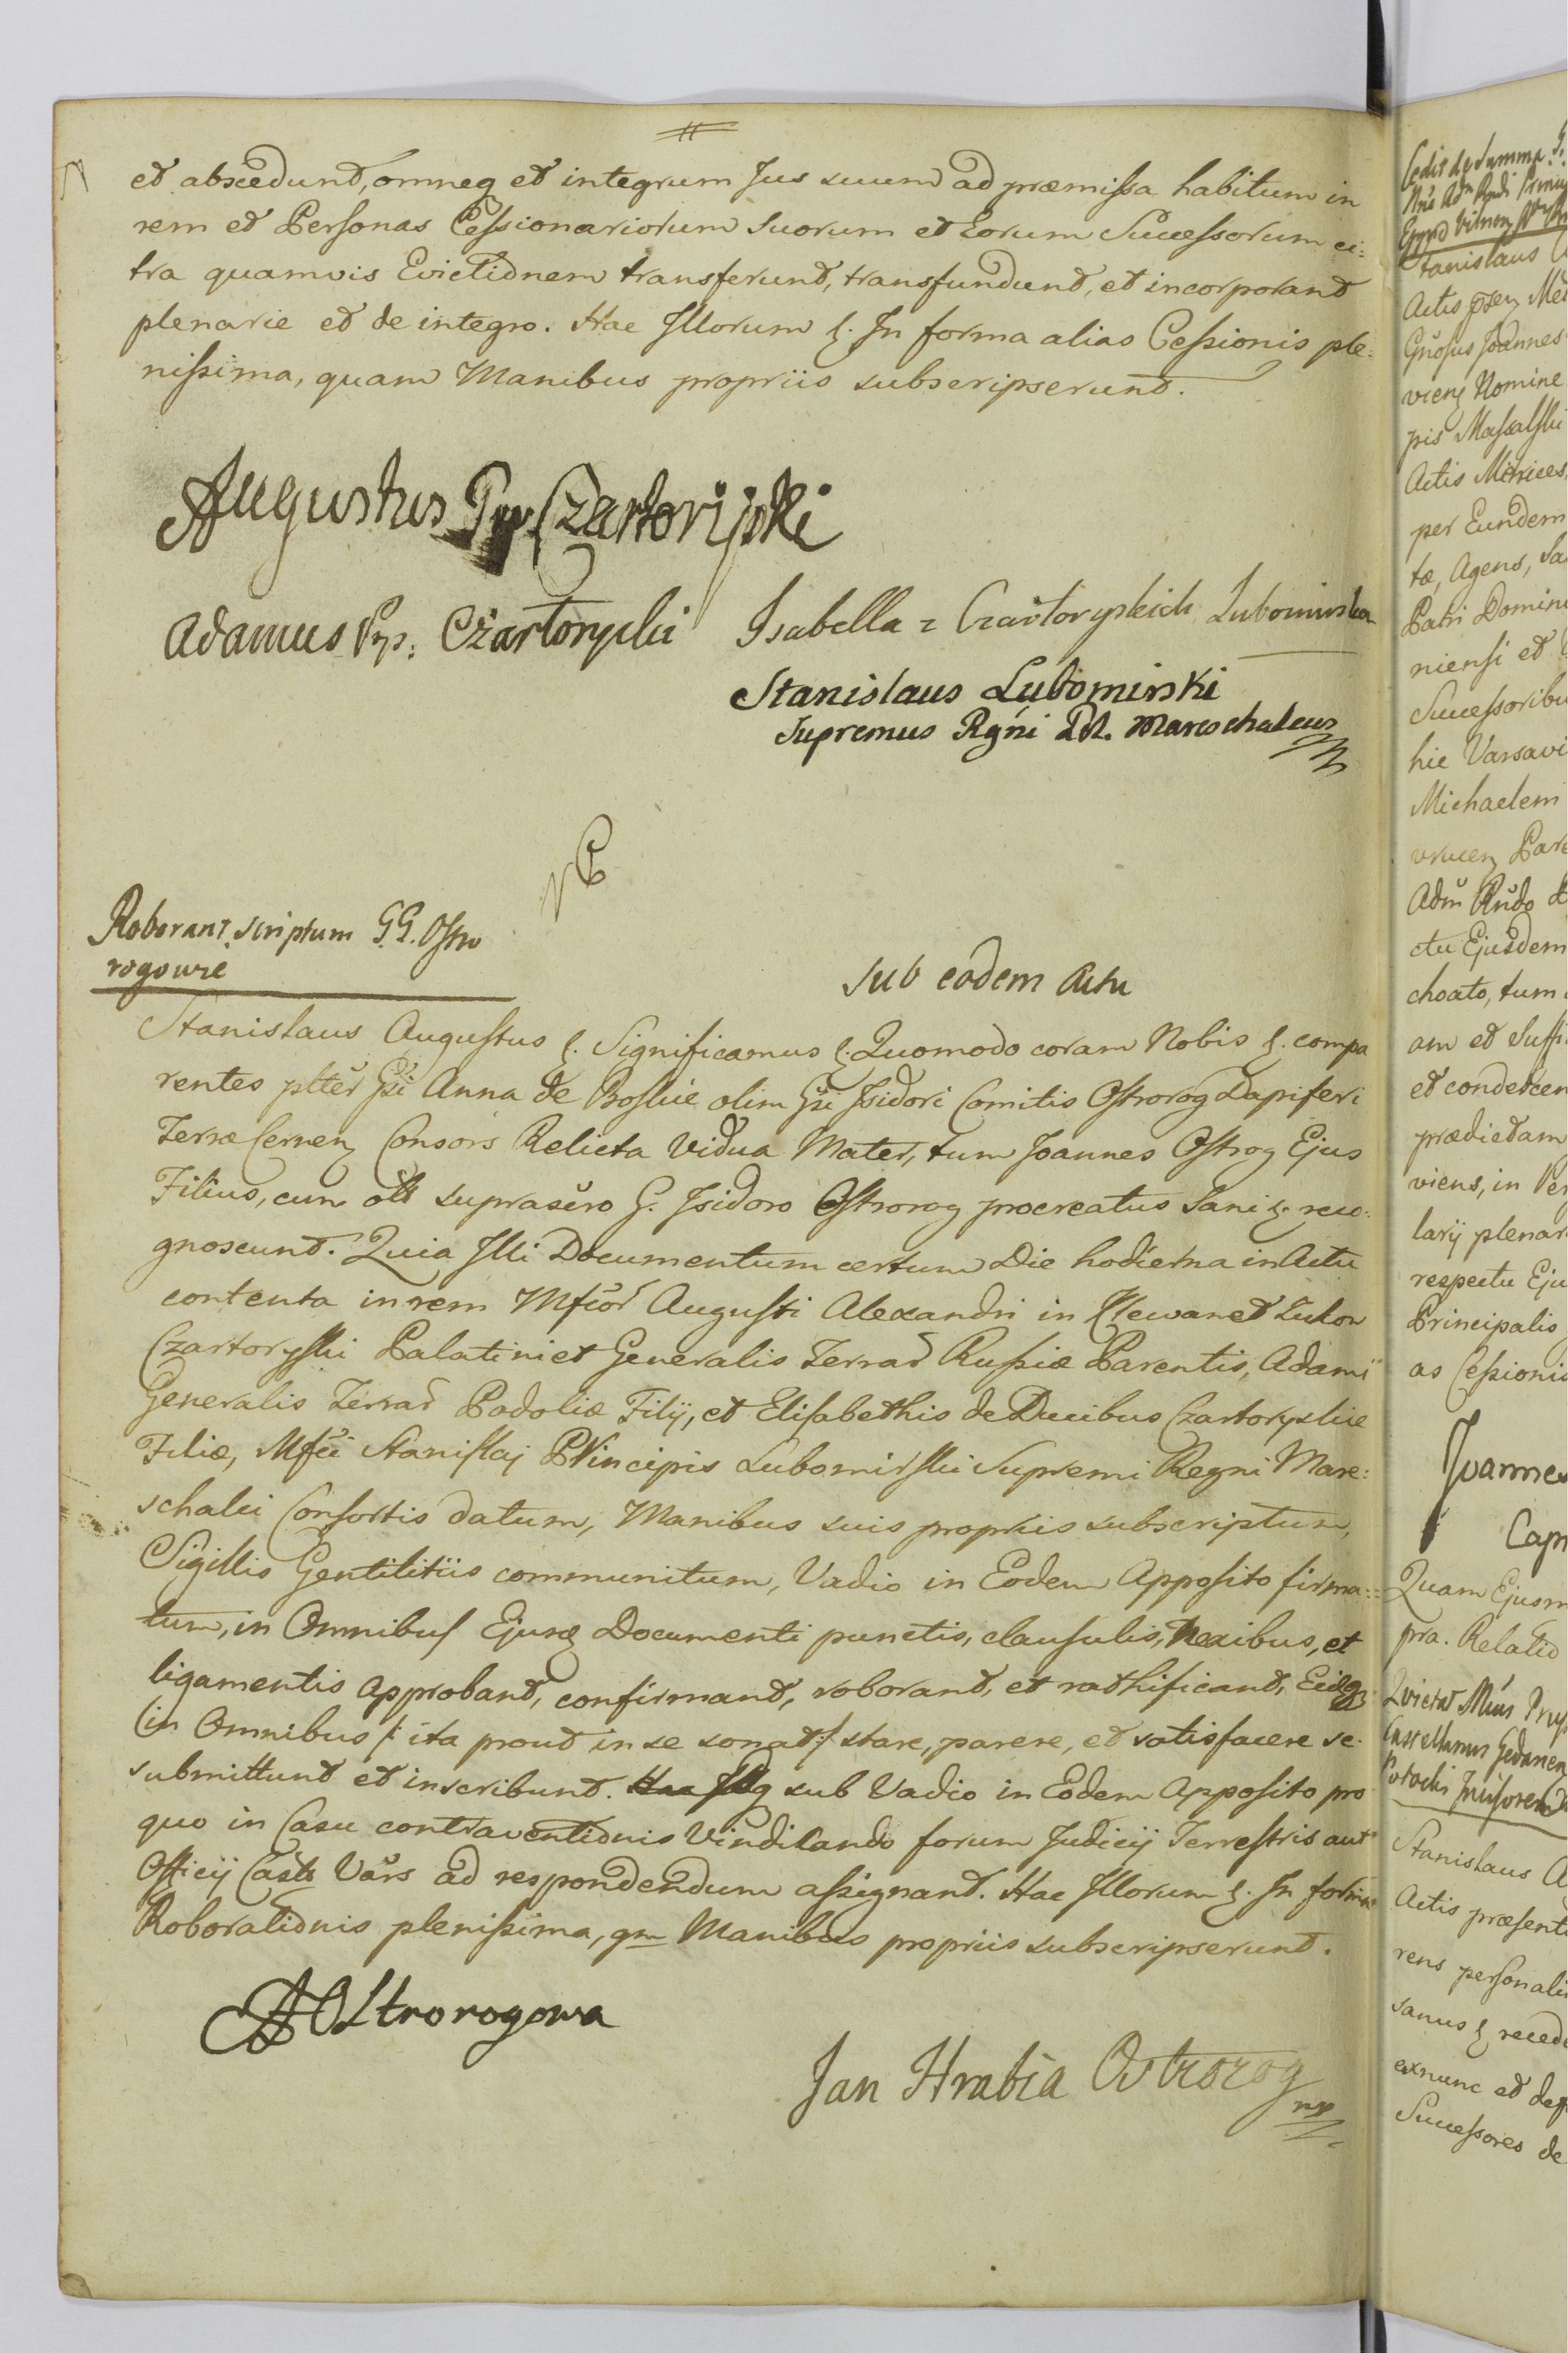 et abscedunt, omneq et integrum Jus suum ad præmissa habitum in
rem et Personas Cessionariorum suorum et Eorum Successorum ci:
tra quamvis Evictionem transferunt, transfundunt, et incorporant
plenarie et de integro. Hac Illorum &. In forma alias Cessionis ple:
nissima, quam Manibus propriis subscripserunt.
Augustus Czartorijski
Adamus Czartoryski Isabella z Czartoryskich Lubomirska
Stanislaus Lubomirski
Supremus Rgni Mareschalcus
Roborant scriptum G.G. Ostro
rogowie
Sub eodem Actu
Stanislaus Augustus &. Significamus &. Quomodo coram Nobis &. compa
rentes pltěr Gsi Anna de Boskie olim Gsi Isidori Comitis Ostrorog Dapiferi
Terræ Cernen Consors Relicta Vidua Mater, tum Joannes Ostrog Ejus
Filius, cum suprascro G. Isidoro Ostrorog procreatus Sani &. reco:
gnoscunt. Quia Illi Documentum certum Die hodierna in Actu
contenta in rem Mfcor Augusti Alexandri in Klewan et Zukow
Czartoryski Palatini et Generalis Terrar Russiæ Parentis, Adami
Generalis Terrar Podoliæ Filij, et Elisabethis de Ducibus Czartoryskie
Filiæ, Mfci Stanislaj Principis Lubomirski Supremi Regni Mare:
schalci Consortis datum, Manibus suis propriis subscriptum,
Sigillis Gentilitiis communitum, Vadio in Eodem Apposito firma=
tum, in Omnibus Ejusq Documenti punctis, clausulis, Nexibus, et
ligamentis approbant, confirmant, roborant, et rathificant, Eidq
in Omnibus /: ita prout in se sonat :/ stare, parere, et satisfacere se
submittunt et inscribunt. sub Vadio in Eodem Apposito pro
quo in Casu contraventionis Vindicando forum Judicij Terrestris aut
Officij Casts Vars ad respondendum assignant. Hac Illorum &. In forma
Roborationis plenissima, qm Manibus propriis subscripserunt.
A Ostrorogowa
Jan Hrabia Ostrorog
mp
Stanislaus
Gnosus Joannes
Nomine
pis Massalski
Actis Metrices
per Eundem
tæ, Agens, Sa
Patri Domin
niensi et
Successoribu
hic Varsavi
Michaelem
ctu Ejusdem
choato, tum
am et Suffi
et condescen
prædictam
viens, in Per
larij plenar
respectu Eju
Principalis
as Cessionis
Joannes
Capi
Quam Ejusm
pra. Relatio
Stanislaus A
Actis præsent
rens personali
sanus & recedi
exnunc et de
Successores de